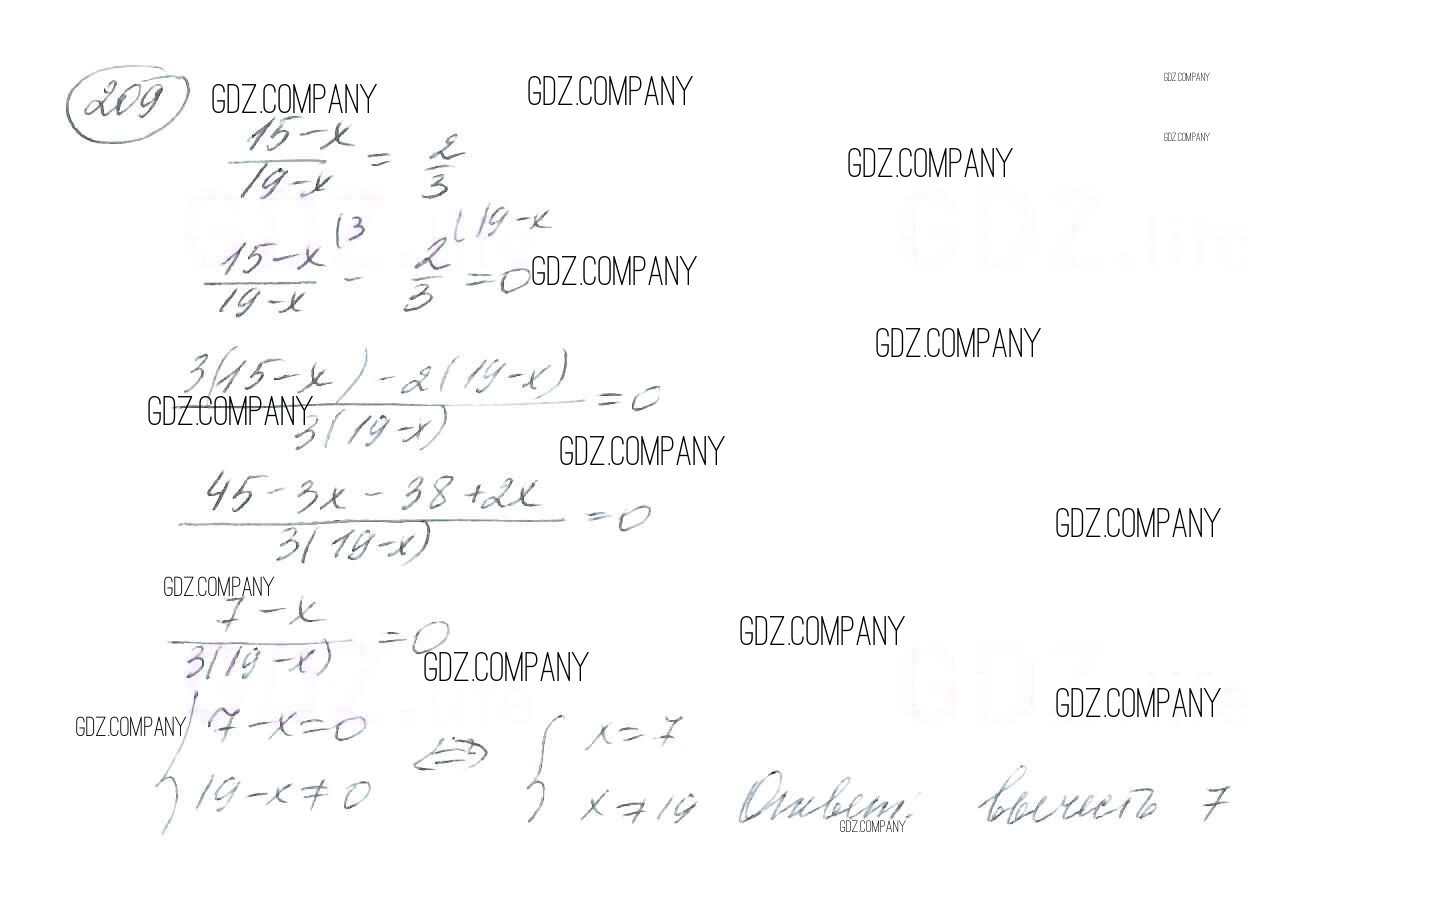 209 GDZ.COMPANY GDZ.COMPANY GDZ.COMPANY
GDZ.COMPANY
(15-x)/(19-x) = 2/3 GDZ.COMPANY
(15-x)/(19-x) (3 - 2/3 (19-x =0 GDZ.COMPANY
GDZ.COMPANY
(3(15-x)-2(19-x))/(3(19-x)) =0
GDZ.COMPANY
GDZ.COMPANY
(45-3x-38+2x)/(3(19-x)) =0 GDZ.COMPANY
GDZ.COMPANY
(7-x)/(3(19-x)) =0 GDZ.COMPANY
GDZ.COMPANY
GDZ.COMPANY
GDZ.COMPANY { 7-x=0 ⇔ { x=7
19-x≠0 x≠19 Ответ: вычесть 7
GDZ.COMPANY